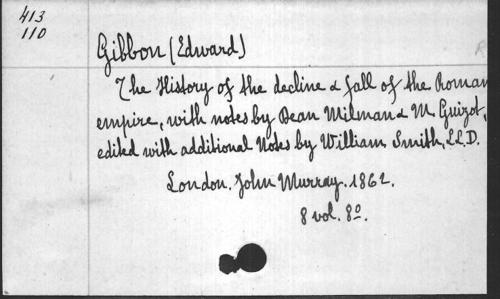 413
110
Gibbon (Edward)
The History of the decline & fall of the Roman
empire, with notes by Dean Milman & M. Guizot,
edited with additional Notes by William Smith, LL.D.
London. John Murray. 1862.
8 vol. 8o.